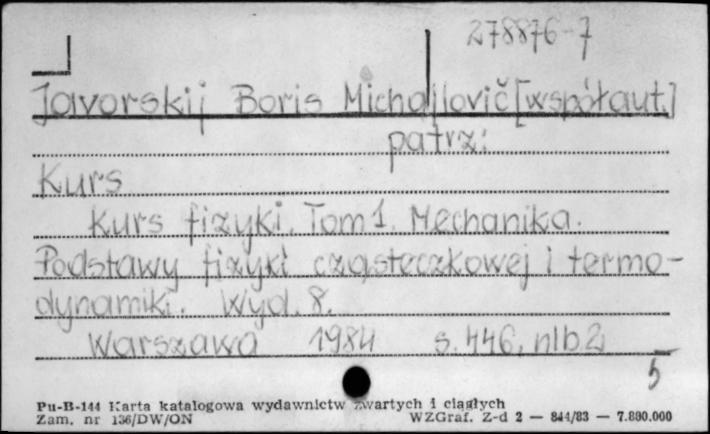 278876-7
Javorskij Boris Michajlovič [współaut.]
patrz:
Kurs
Kurs fizyki. Tom 1. Mechanika.
Podstawy fizyki cząsteczkowej i termo-
dynamiki. Wyd. 8.
Warszawa 1984 s. 446, nlb 2
5
Pu-B-144 Karta katalogowa wydawnictw zwartych i ciągłych
Zam. nr 136/DW/ON WZGraf. Z-d 2 — 844/83 — 7.880.000